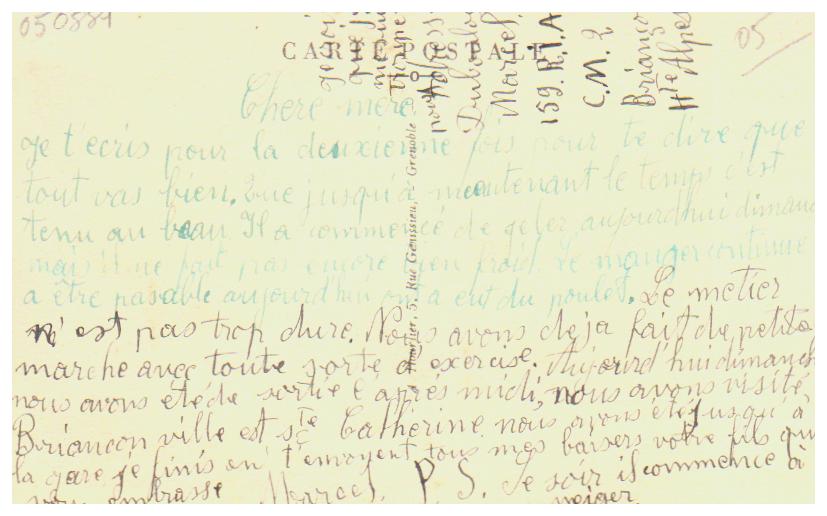 050881
05
CARTE POSTALE
Chere mere.
Je t'ecris pour la deuxieme fois pour te dire que
tout vas bien. Que jusqu'à maintenant le temps c'est
tenu au beau Il a commencé de geler aujourd'hui dimanc
mais il ne fait pas encore bien froid. Le manger continue
a être pasable aujourd'hui ont a eut du poulet. Le metier
n'est pas trop dure. Nous avons deja fait de petite
marche avec toute sorte d exercise. Aujourd'hui dimanch
nous avons été de sortie l'après midi, nous avons visité
Briancon ville est Ste Catherine nous avons été jusqu'à
la gare je finis en t'envoyent tous mes baisers votre fils qui
vous embrasse Marcel. P.S. Le soir il commence à
neiger.
Duboulo
Marcel.
159. R.I.A
C.M. 2
Brianço
Hte Alpes
5, Rue Genissieu, - Grenoble